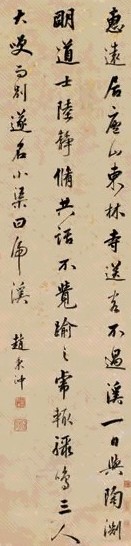 惠遠居庐山東林寺送客不過溪一日與陶渊
明道士陸静脩共話不覺踰之虎輒驟鳴三人
大咲而別遂名小渠曰虎溪 趙秉冲